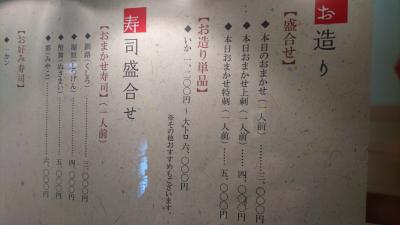 お造り
【盛合せ】
◆本日のおまかせ(一人前)………三、〇〇〇円
◆本日おまかせ上刺(一人前)……四、〇〇〇円
◆本日おまかせ特刺(一人前)……五、〇〇〇円
【お造り単品】
◆いか 一、二〇〇円 ～ 大トロ 六、〇〇〇円
※その他おすすめもございます。
寿司盛合せ
【おまかせ寿司】(一人前)
◆釧路(くしろ)………三、〇〇〇円
◆………四、〇〇〇円
◆………五、〇〇〇円
◆都(みやこ)………六、〇〇〇円
【お好み寿司】
◆一カン